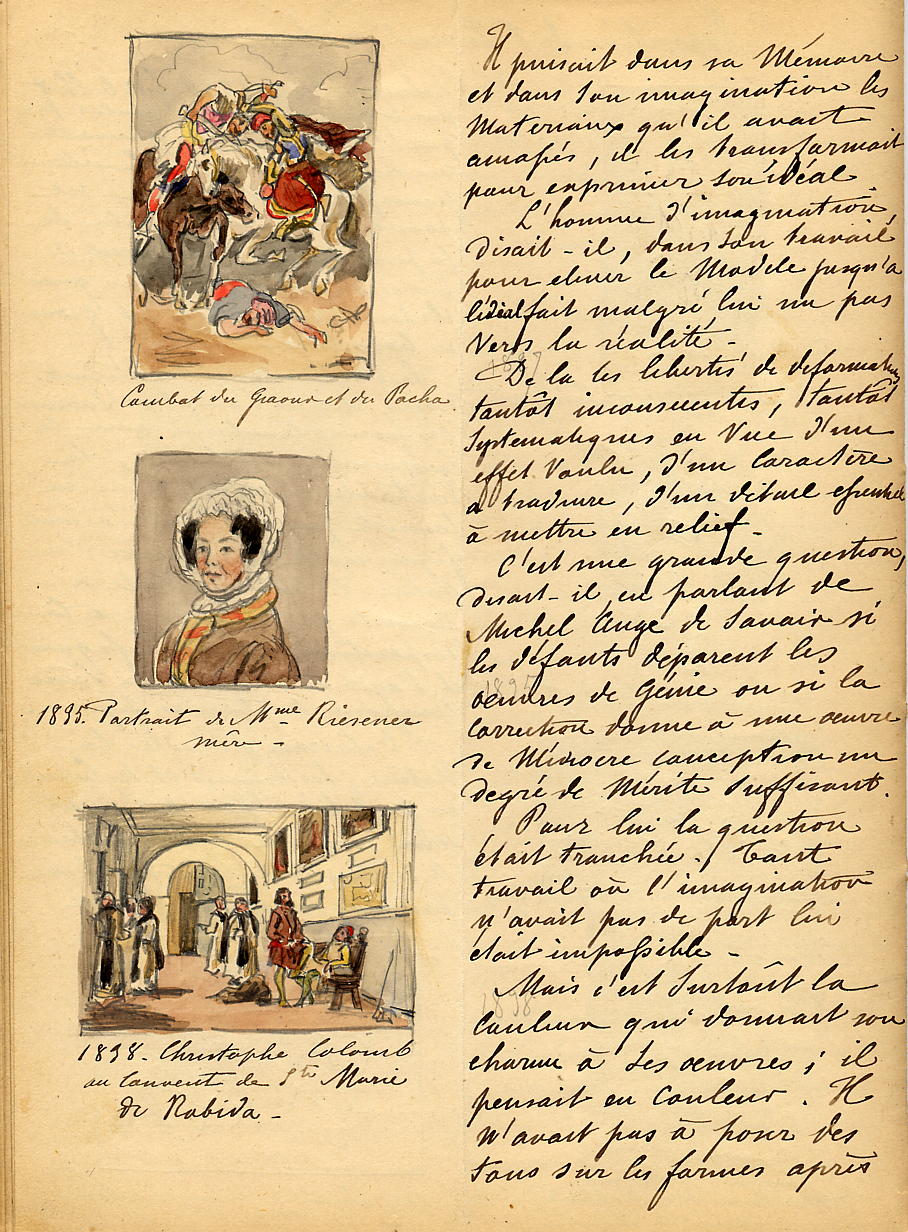 Combat du Giaour et du Pacha
1835. Portrait de Mme Riesener
mère -
1838 - Christophe Colomb
au Couvent de Ste Marie
de Rabida -
Il puisait dans sa Mémoire
et dans son imagination les
Materiaux qu'il avait
amassés, il les transformait
pour exprimer son idéal
L'homme d'imagination,
disait-il, dans son travail
pour elever le Modele jusqu'à
l'idéal fait malgré lui un pas
Vers la réalité -
De la les libertés de deformation
tantôt inconscientes, tantôt
Systematiques en Vue d'un
effet Voulu, d'un Caractère
a traduire, d'un détail essentiel
à mettre en relief -
C'est une grande question,
disait-il en parlant de
Michel Ange de Savoir si
les défauts déparent les
oeuvres de Génie ou si la
Correction donne à une oeuvre
de Médiocre conception un
degré de Mérite Suffisant.
Pour lui la question
était tranchée. Tout
travail où l'imagination
n'avait pas de part lui
était impossible -
Mais c'est Surtoût la
Couleur qui donnait son
charme à Ses oeuvres ; il
pensait en Couleur. Il
n'avait pas à poser des
tons sur les formes après